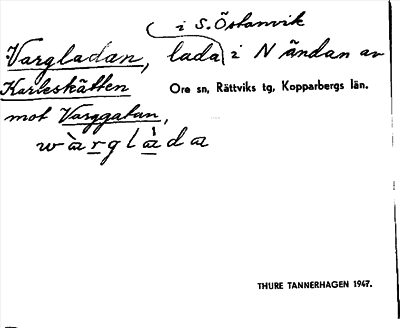 i S. Östanvik
Vargladan, lada i N ändan av
Karleskätten
Ore sn, Rättviks tg, Kopparbergs län.
mot Varggatan,
wàrglàda
THURE TANNERHAGEN 1947.